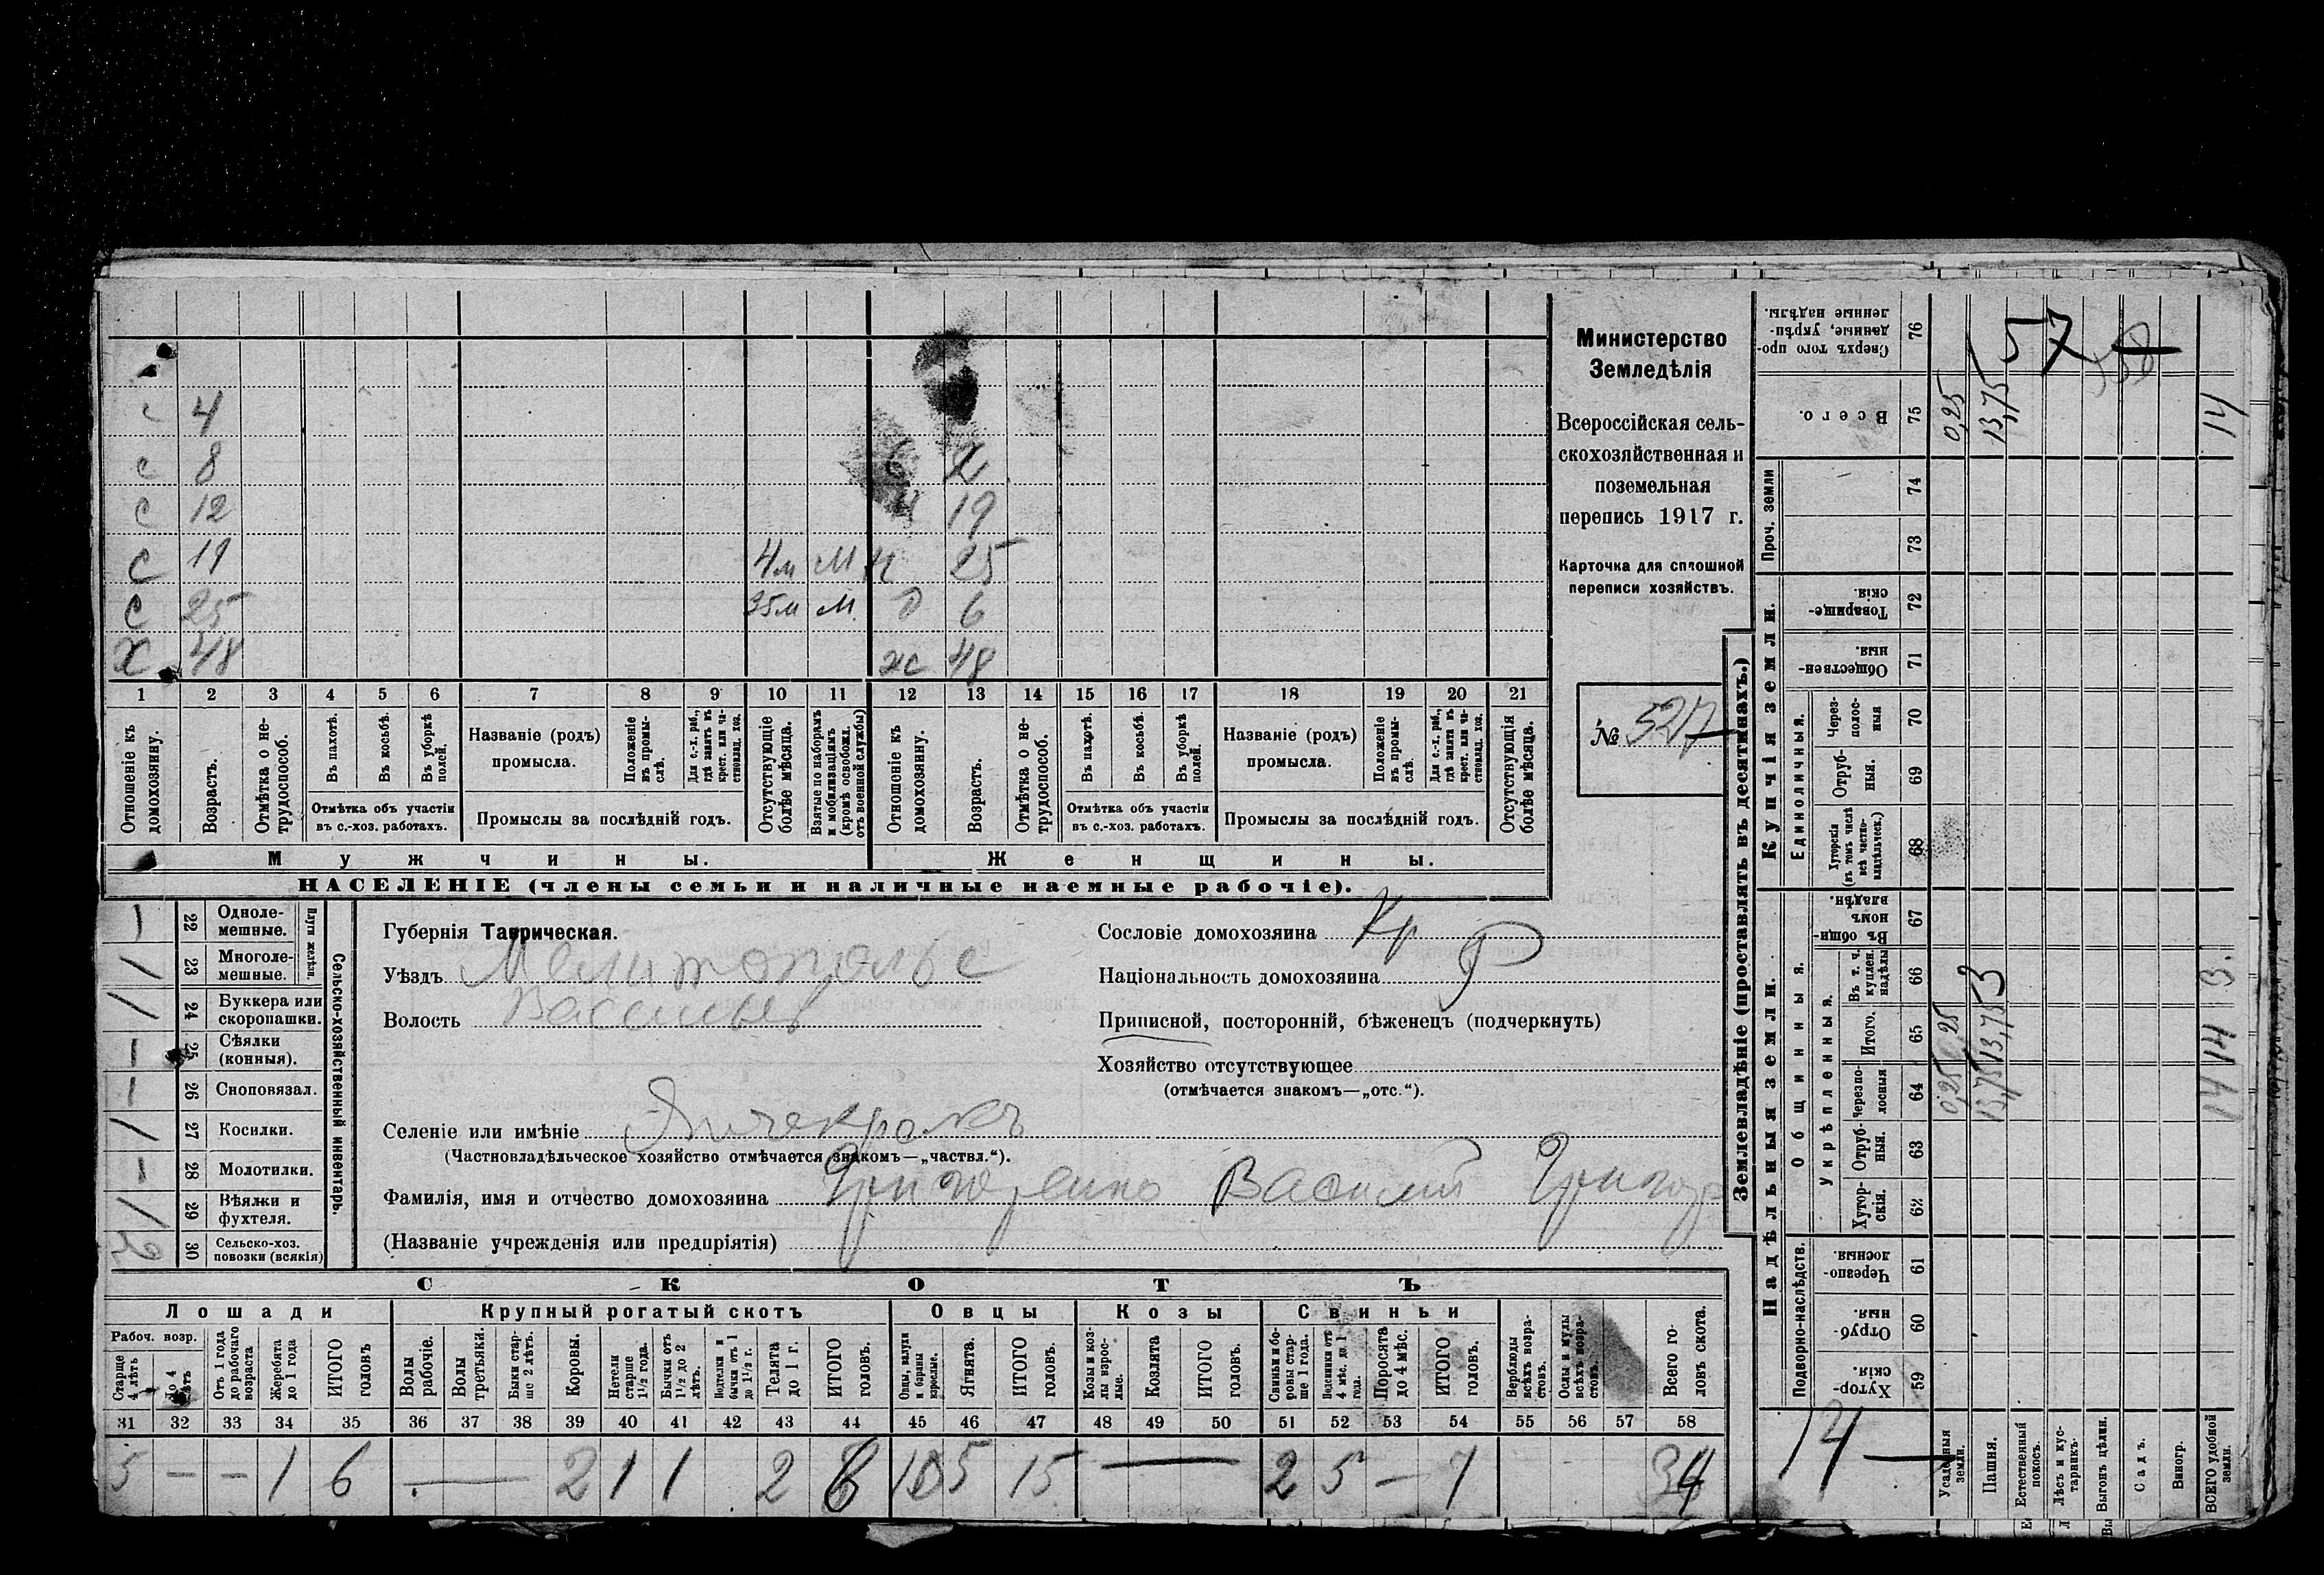 Министерство
Земледѣлія
Всероссійская сель-
скохозяйственная и
поземельная
перепись 1917 г.
Карточка для сплошной
переписи хозяйствъ.
№ 527
4
с 8
с 12 19
с 19 4м М 25
с 25 35м М. 6
Х 48 ж 48
1 2 3 4 5 6 7 8 9 10 11 12 13 14 15 16 17 18 19 20 21
Отношеніе къ домохозяину.
Возрастъ.
Отмѣтка о не-трудоспособ.
Въ пахотѣ.
Въ косьбѣ.
Въ уборкѣ полей.
Отмѣтка объ участіи
въ с.-хоз. работахъ.
Названіе (родъ)
промысла.
Положеніе въ промы-слѣ.
Для с.-х. раб., гдѣ занятъ въ крест. или ча-стновлад. хоз.
Промыслы за послѣдній годъ.
Отсутствующіе болѣе мѣсяца.
Взятые по наборамъ и мобилизаціямъ (кромѣ освобожд. отъ военной службы)
Отношеніе къ домохозяину.
Возрастъ.
Отмѣтка о не-трудоспособ.
Въ пахотѣ.
Въ косьбѣ.
Въ уборкѣ полей.
Отмѣтка объ участіи
въ с.-хоз. работахъ.
Названіе (родъ)
промысла.
Положеніе въ промы-слѣ.
Для с.-х. раб., гдѣ занята въ крест. или ча-стновлад. хоз.
Промыслы за послѣдній годъ.
Отсутствующія болѣе мѣсяца.
Мужчины. Женщины.
НАСЕЛЕНІЕ (члены семьи и наличные наемные рабочіе).
Сельско-хозяйственный инвентарь.
Плуги желѣзн.
1 22 Одноле-мешные.
1 23 Многоле-мешные.
1 24 Буккера или скоропашки.
1 25 Сѣялки (конныя).
1 26 Сноповязал.
1 27 Косилки.
- 28 Молотилки.
1 29 Вѣялки и фухтеля.
30 Сельско-хоз. повозки (всякія)
Губернія Таврическая.
Уѣздъ Мелитопольс
Волость Васильев
Сословіе домохозяина Кр
Національность домохозяина Р
Приписной, посторонній, бѣженецъ (подчеркнуть)
Хозяйство отсутствующее
(отмѣчается знакомъ—„отс.“).
Селеніе или имѣніе Янчекракъ
(Частновладѣльческое хозяйство отмѣчается знакомъ—„частвл.“).
Фамилія, имя и отчество домохозяина Григоренко Василий Григор
(Названіе учрежденія или предпріятія)
СКОТЪ
Лошади Крупный рогатый скотъ Овцы Козы Свиньи
Рабоч. возр.
Старше 4 лѣтъ
До 4 лѣтъ
Отъ 1 года до рабочаго возраста
Жеребята до 1 года
ИТОГО головъ
Волы рабочіе.
Волы третьяки.
Быки стар-ше 2 лѣтъ.
Коровы.
Нетели старше 1½ года.
Бычки отъ 1½ до 2 лѣтъ.
Подтелки и бычки отъ 1 до 1½ г.
Телята до 1 г.
ИТОГО головъ.
Овцы, валухи и бараны взрослые.
Ягнята.
ИТОГО головъ.
Козы и коз-лы взрос-лые.
Козлята
ИТОГО головъ.
Свиньи и бо-ровы стар-ше 1 года.
Подсвинки отъ 4 мѣс. до 1 года.
Поросята до 4 мѣс.
ИТОГО головъ.
Верблюды всѣхъ возра-стовъ.
Ослы и мулы всѣхъ возра-стовъ.
Всего го-ловъ скота.
31 32 33 34 35 36 37 38 39 40 41 42 43 44 45 46 47 48 49 50 51 52 53 54 55 56 57 58
5 - - 1 6 - 2 1 1 2 6 10 5 15 - 2 5 - 7 34
Землевладѣніе (проставлять въ десятинахъ.)
Надѣльныя земли. Купчія земли.
Проч. земли
Подворно-наслѣдств.
Общинныя.
Укрѣпленныя.
Единоличныя.
Хутор-скія. 59
Отруб-ныя. 60
Черезпо-лосныя 61
Хутор-скія. 62
Отруб-ныя. 63
Черезпо-лосныя 64
Итого. 65
Въ т. ч. куплен. надѣлы 66
Въ общин-номъ владѣн. 67
Хуторскія (въ томъ числѣ всѣ частно-владѣльческ.) 68
Отруб-ныя. 69
Через-полос-ныя 70
Обществен-ныя. 71
Товарище-скія. 72
73
74
Всего. 75
Сверхъ того про-данные, укрѣп-ленные надѣлы. 76
Усадебныя земли. 0,25 0,25 0,25
Пашня. 13,75 13,75 3 13,75
Естественный покосъ.
Лѣсъ и кус-тарникъ.
Выгонъ цѣлин.
Садъ.
Виногр.
ВСЕГО удобной земли. 14 14 3. 14
14
57
58